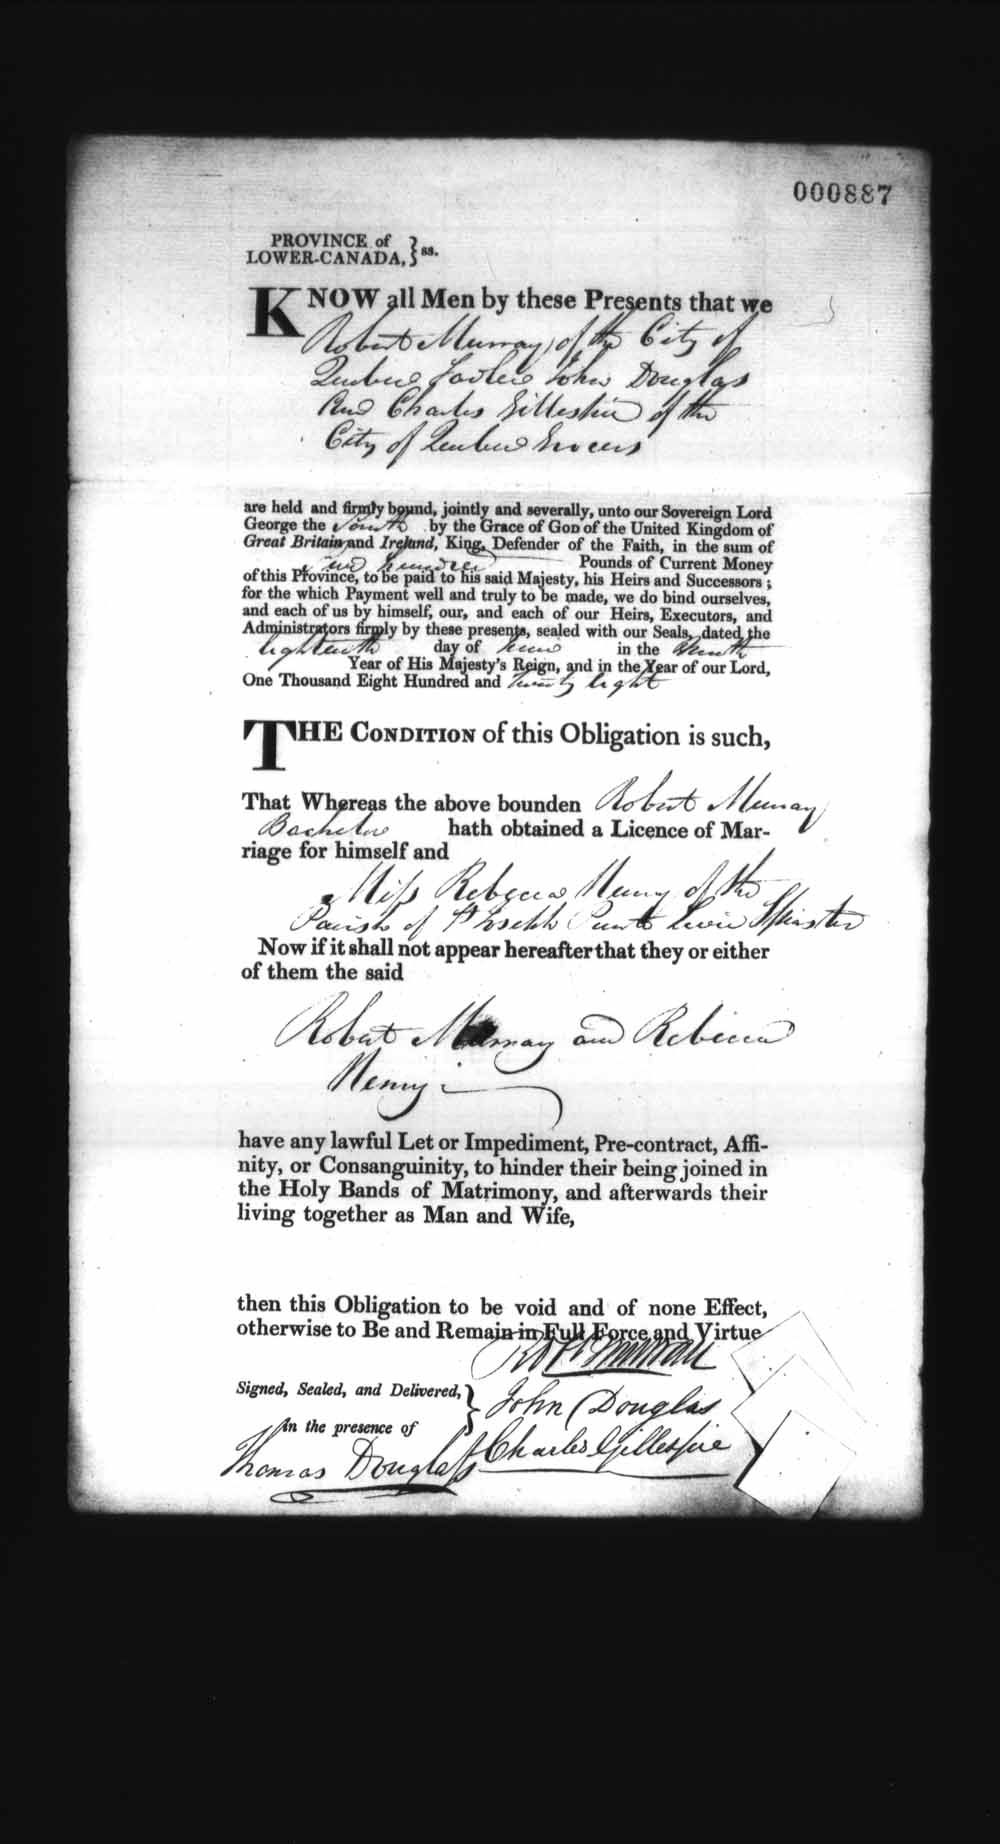 000887
PROVINCE of
LOWER-CANADA, } ss.
KNOW all Men by these Presents that we
Robert Murray, of the City of
Quebec John Douglas
And Charles Gillespie of the
City of Quebec Grocers
are held and firmly bound, jointly and severally, unto our Sovereign Lord
George the Fourth by the Grace of GOD of the United Kingdom of
Great Britain and Ireland, King, Defender of the Faith, in the sum of
hundred Pounds of Current Money
of this Province, to be paid to his said Majesty, his Heirs and Successors;
for the which Payment well and truly to be made, we do bind ourselves,
and each of us by himself, our, and each of our Heirs, Executors, and
Administrators firmly by these presents, sealed with our Seals, dated the
Eighteenth day of June in the Ninth
Year of His Majesty's Reign, and in the Year of our Lord,
One Thousand Eight Hundred and twenty eight
THE CONDITION of this Obligation is such,
That Whereas the above bounden Robert Murray
Bachelor hath obtained a Licence of Mar-
riage for himself and
Miss Rebecca Henry of the
Parish of St Joseph Pointe Levie Spinster
Now if it shall not appear hereafter that they or either
of them the said
Robert Murray and Rebecca
Henry
have any lawful Let or Impediment, Pre-contract, Affi-
nity, or Consanguinity, to hinder their being joined in
the Holy Bands of Matrimony, and afterwards their
living together as Man and Wife,
then this Obligation to be void and of none Effect,
otherwise to Be and Remain in Full Force and Virtue
Robt Murray
Signed, Sealed, and Delivered, }
John Douglas
In the presence of
Charles Gillespie
Thomas Douglass